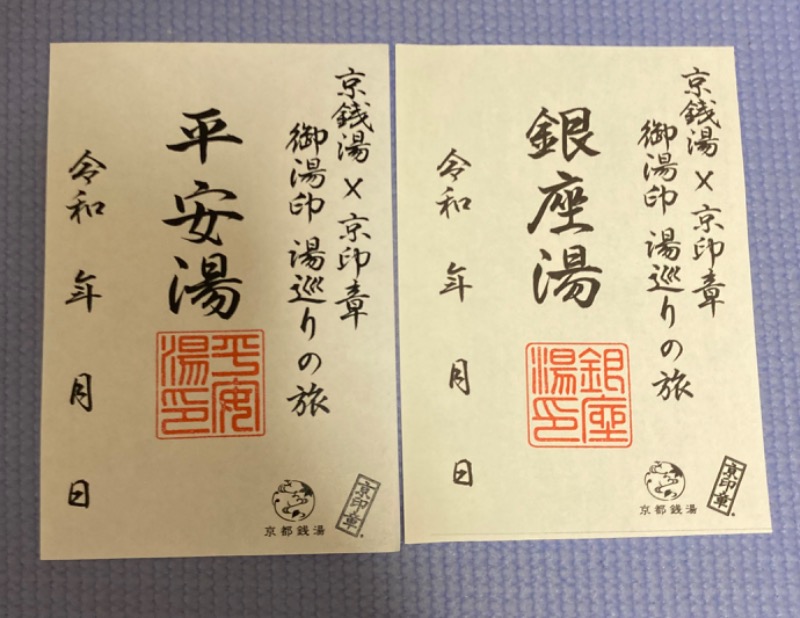 京銭湯×京印章
御湯印 湯巡りの旅
平安湯
平安湯印
令和 年 月 日
京都銭湯
京印章
京銭湯×京印章
御湯印 湯巡りの旅
銀座湯
銀座湯印
令和 年 月 日
京都銭湯
京印章